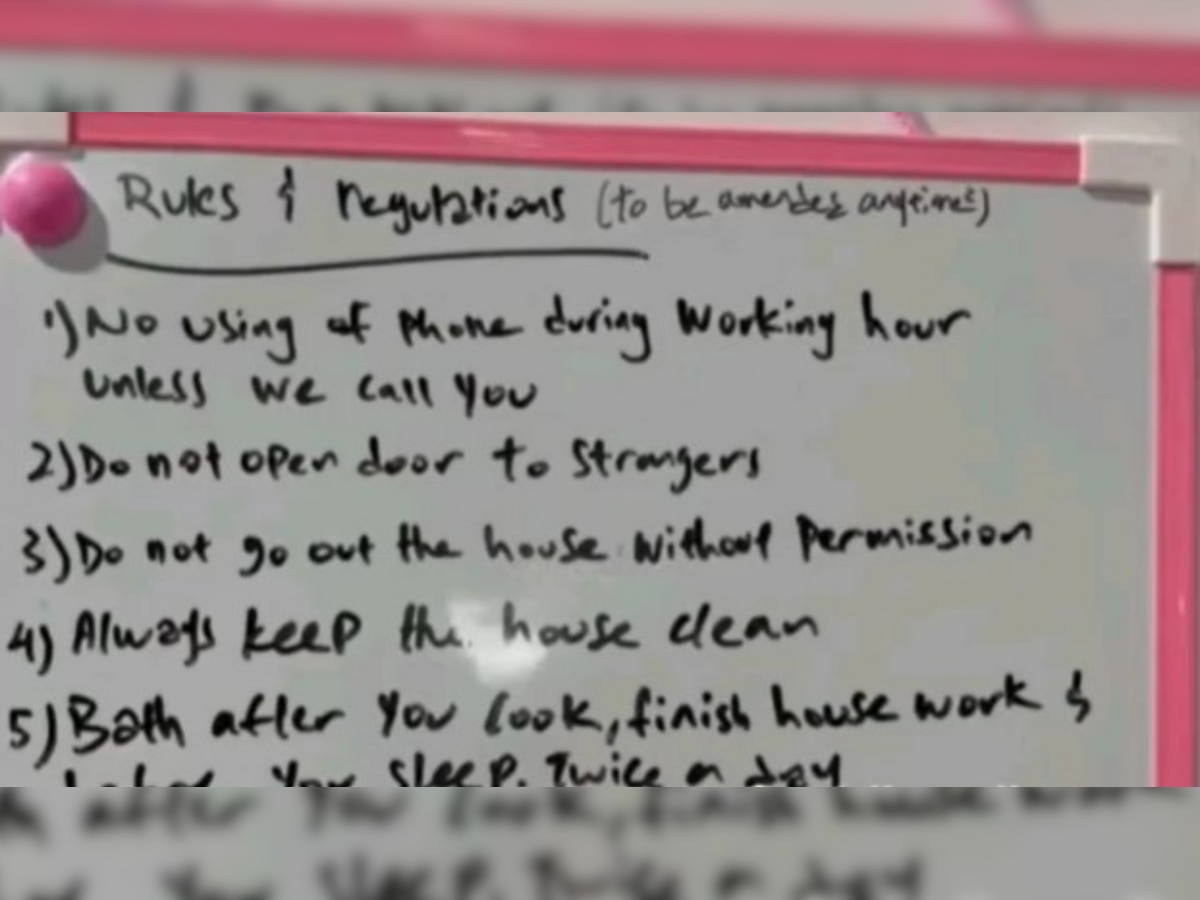 Rules & regulations (to be amended anytime)
1) No using of phone during working hour
unless we call you
2) Do not open door to strangers
3) Do not go out the house without permission
4) Always keep the house clean
5) Bath after you cook, finish house work &
before you sleep. Twice a day